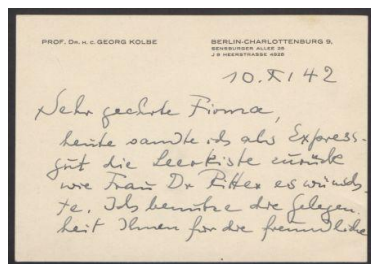 PROF. DR. H. C. GEORG KOLBE
BERLIN-CHARLOTTENBURG 9,
SENSBURGER ALLEE 26
J 9 HEERSTRASSE 4928
10. XI 42
Sehr geehrte Firma,
heute sandte ich als Express-
gut die Leerkiste zurück
wie Frau Dr Ritter es wünsch-
te. Ich benutze die Gelegen-
heit Ihnen für die freundliche